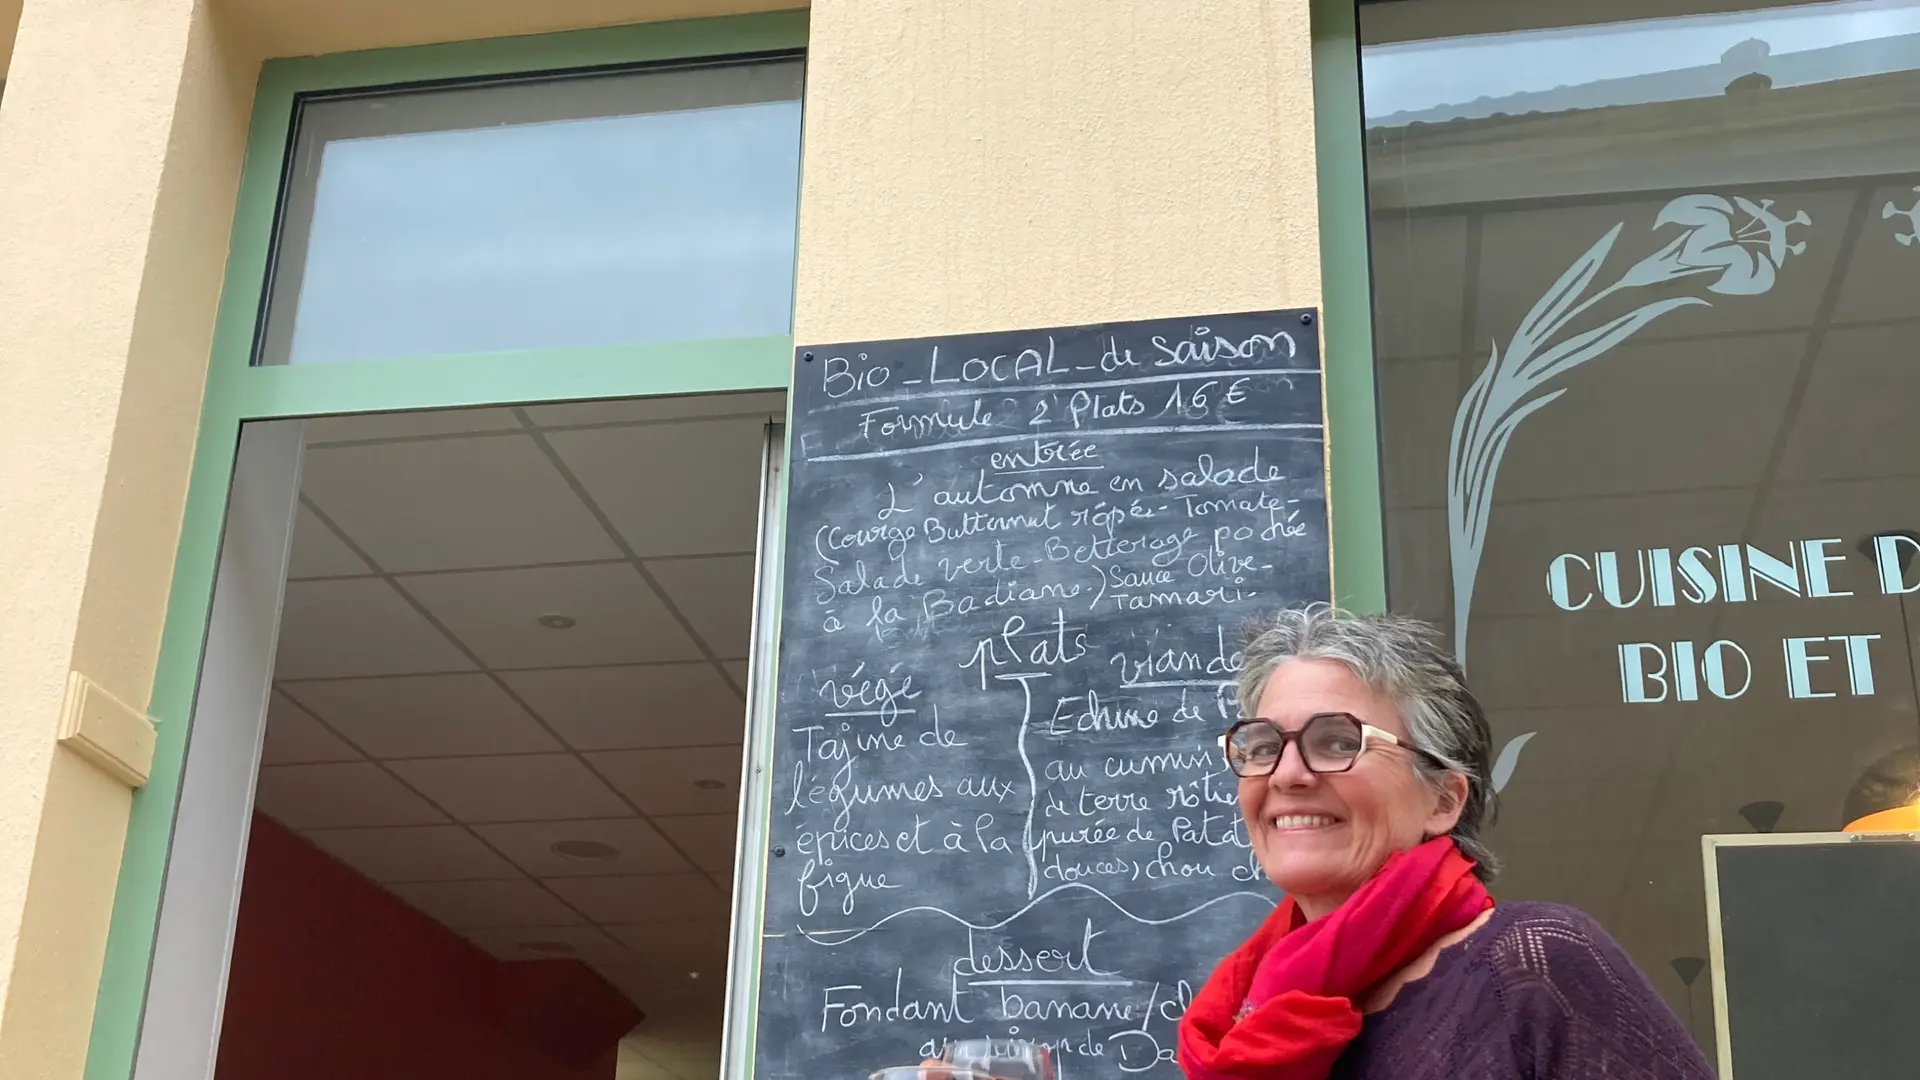 Bio - LOCAL - de saison
Formule 2 Plats 16 €
entrée
L'automne en salade
(Courge Butternut râpé - Tomate -
Salade verte - Betterage pochée
à la Badiane) Sauce Olive -
Tamari -
plats
végé
Tajine de
légumes aux
épices et à la
figue
viande
Echine de
au cumin,
de terre rôtie
purée de Patat
douces, chou
dessert
Fondant banane/
de Da
CUISINE D
BIO ET